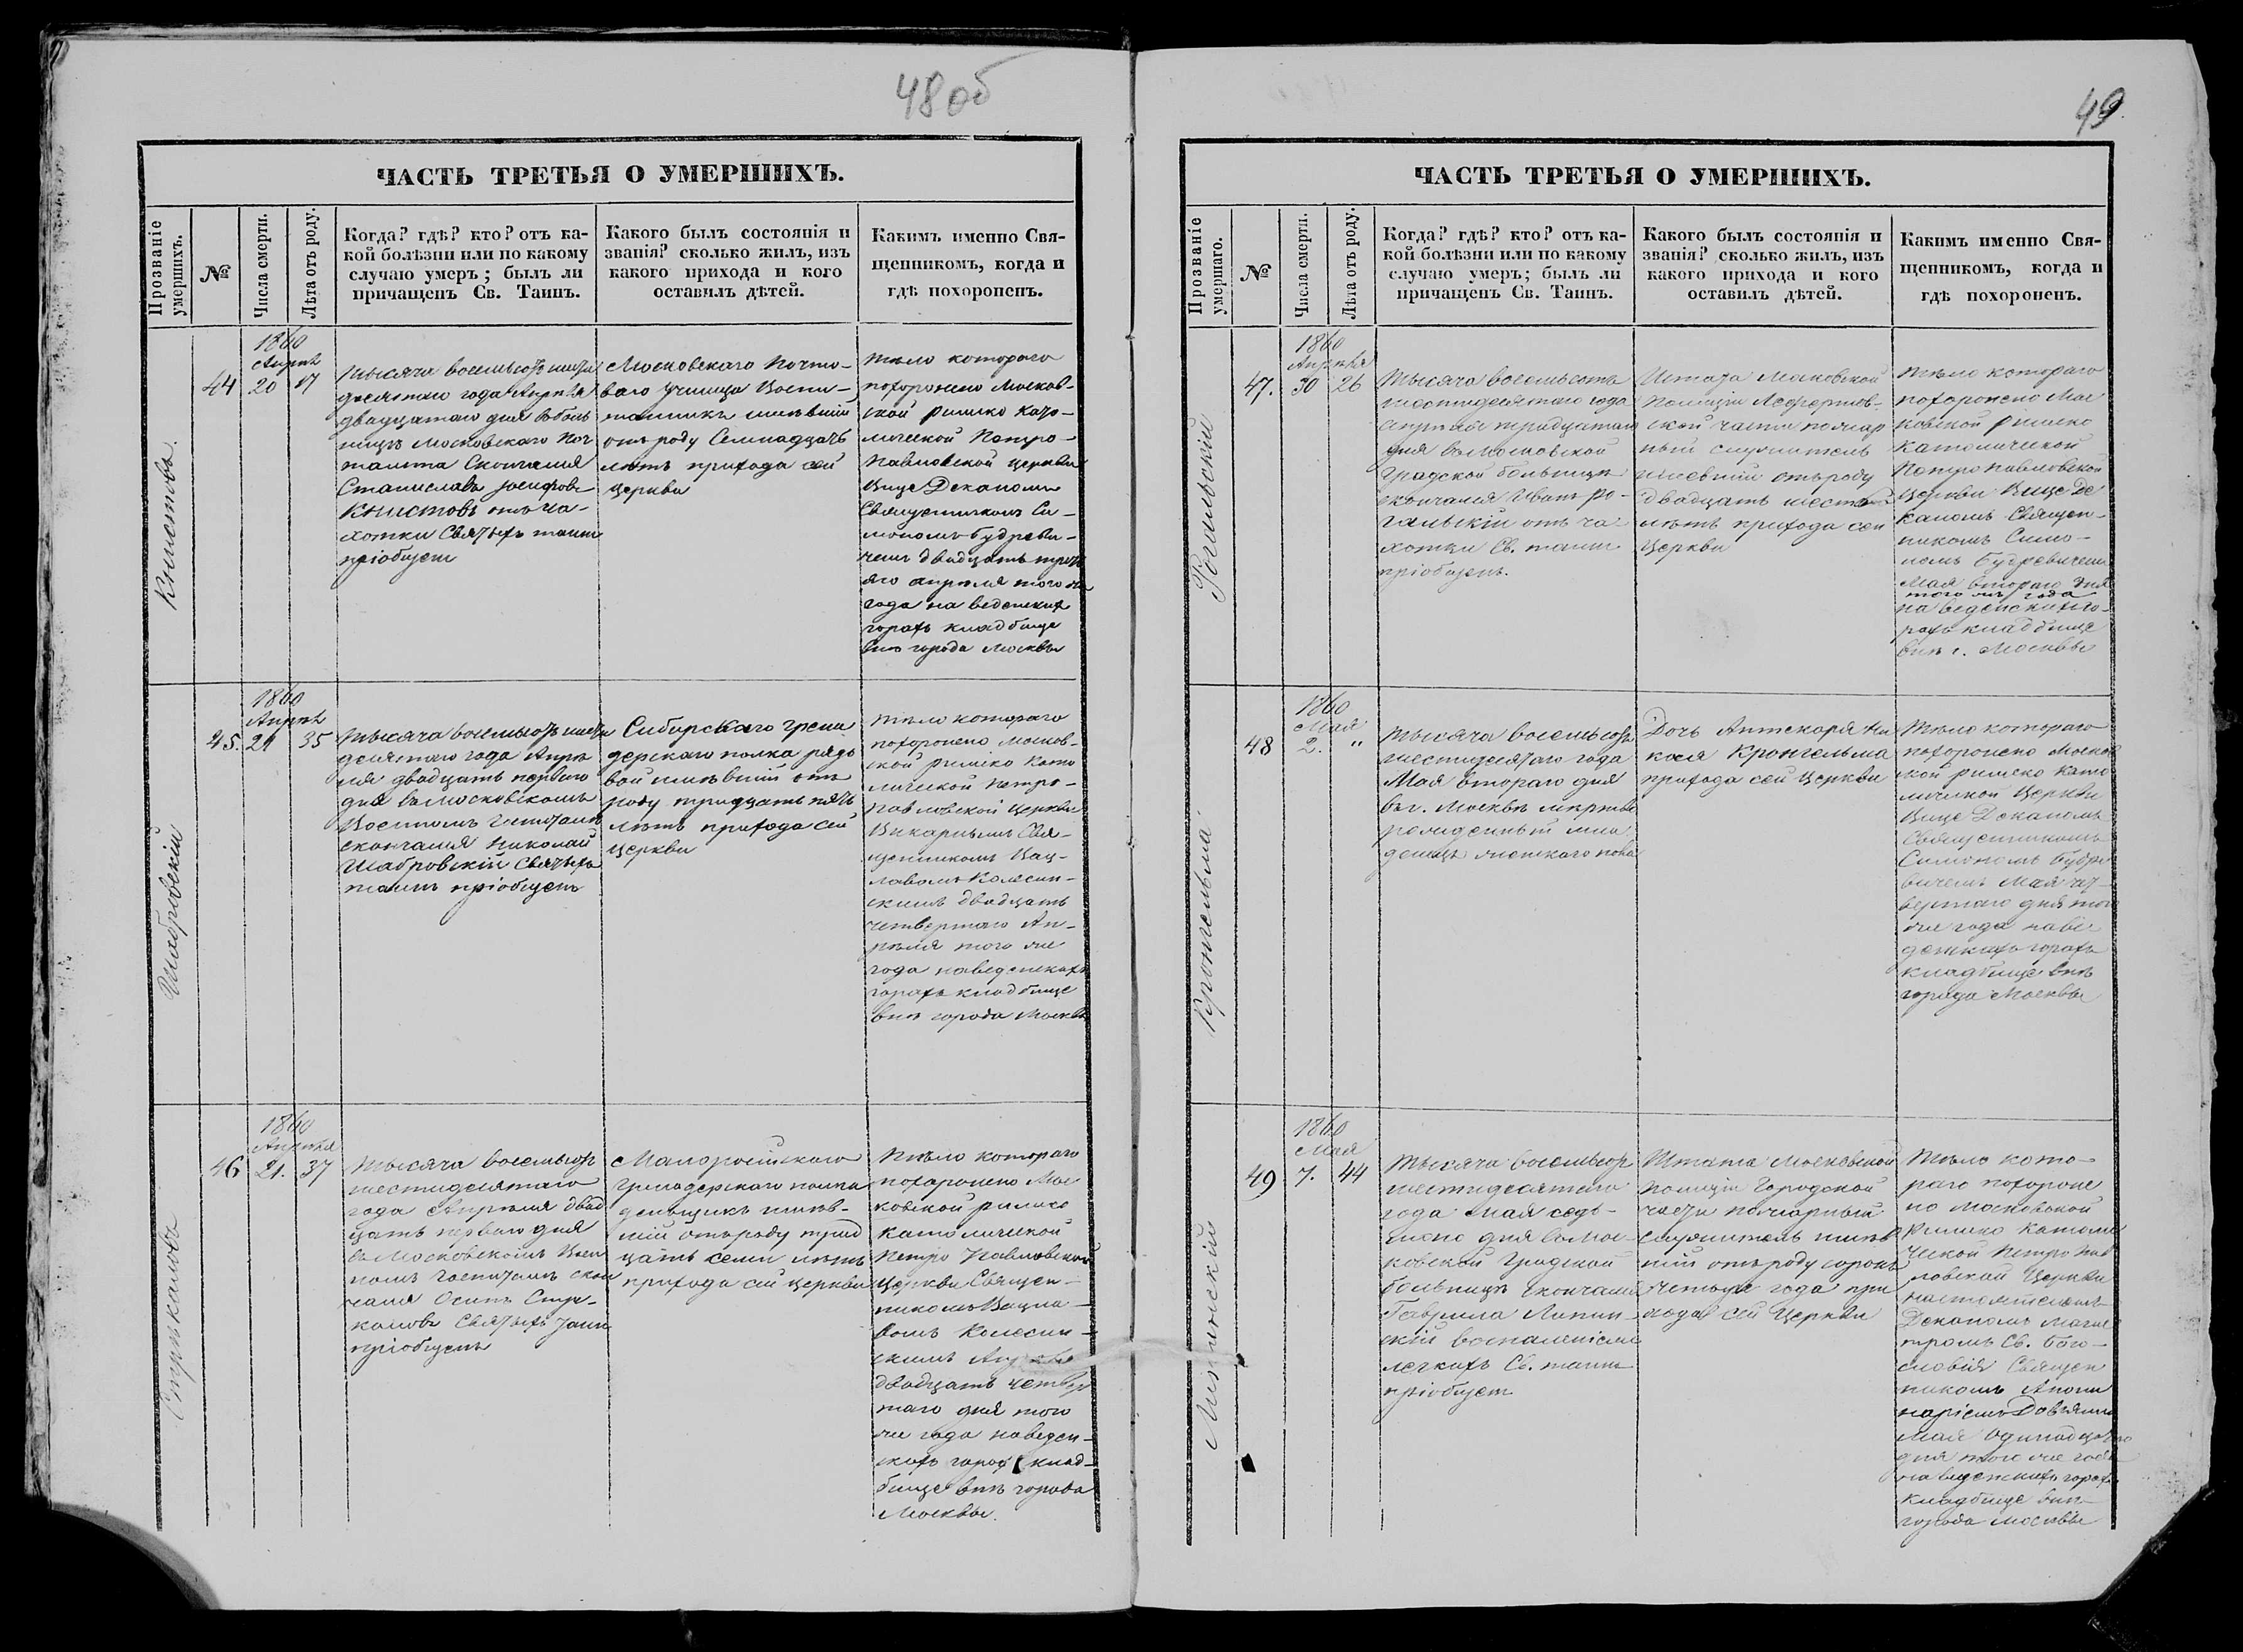 48 об
ЧАСТЬ ТРЕТЬЯ О УМЕРШИХЪ.
Прозваніе умершихъ.
№
Числа смерти.
Лѣта отъ роду.
Когда? гдѣ? кто? отъ ка-
кой болѣзни или по какому
случаю умеръ; былъ ли
причащенъ Св. Таинъ.
Какого былъ состоянія и
званія? сколько жилъ, изъ
какого прихода и кого
оставилъ дѣтей.
Какимъ именно Свя-
щенникомъ, когда и
гдѣ похороненъ.
Книстовъ.
44
1860
Апрѣл
20
17
тысяча восемьсотъ шести
десятаго года Апрѣля
двадцатаго дня въ боль
ницѣ Московскаго Поч
тамта Скончался
Станиславъ Іосифовъ
Книстовъ отъ ча-
хотки Святыхъ таинъ
пріобщен
Московскаго Почто-
ваго училища Воспи-
танникъ имѣвшій
отъ роду Семнадцать
лѣтъ прихода сей
церкви
тѣло котораго
похоронено Москов-
ской римско като-
лической Петро-
Павловской церкви
Вице Деканомъ
Священникомъ Си-
мономъ Будреви-
чемъ двадцать треть
яго апрѣля того же
года на веденских
горахъ кладбище
внѣ города Москвы
Шабровскій
45.
1860
Апрѣл
21
35
тысяча восемьсотъ шести
десятаго года Апрѣ
ля двадцать перваго
дня въ Московскомъ
Военномъ Гошпитали
скончался Николай
Шабровскій Святыхъ
таинъ пріобщенъ
Сибирскаго грена
дерскаго полка рядо
вой имѣвшій отъ
роду тридцать пять
лѣтъ прихода сей
церкви
тѣло котораго
похоронено Москов-
ской римско като
лической петро-
павловской церкви
Викарнымъ Свя-
щенникомъ Вац-
лавомъ Колесин-
скимъ двадцать
четвертаго Ап-
рѣля того же
года на веденскихъ
горахъ кладбище
внѣ города Москвы
Стрѣкаловъ
46
1860
Апрѣля
21.
37
Тысяча восемьсот
шестидесятаго
года Апрѣля двад
цать перваго дня
въ Московскомъ Воен
номъ Госпиталѣ скон
чался Осипъ Стрѣ-
каловъ Святыхъ таин
пріобщенъ
Малороссійскаго
Гренадерскаго полка
деньщикъ имѣв-
шій отъ роду трид
цать семь лѣтъ
прихода сей церкви
тѣло котораго
похоронено Мос
ковской римско
католической
Петро Павловской
церкви Священ-
никомъ Вацла-
вомъ Колесин-
скимъ
двадцать четвер
таго дня того
же года на веден-
скихъ горах клад-
бище внѣ города
Москвы.
49
ЧАСТЬ ТРЕТЬЯ О УМЕРШИХЪ.
Прозваніе умершаго.
№
Числа смерти.
Лѣта отъ роду.
Когда? гдѣ? кто? отъ ка-
кой болѣзни или по какому
случаю умеръ; былъ ли
причащенъ Св. Таинъ.
Какого былъ состоянія и
званія? сколько жилъ, изъ
какого прихода и кого
оставилъ дѣтей.
Какимъ именно Свя-
щенникомъ, когда и
гдѣ похороненъ.
Рогальскій
47.
1860
Апрѣля
30
26
Тысяча восемьсотъ
шестидесятаго года
апрѣля тридцатаго
дня въ Московской
Градской больницѣ
скончался Иванъ Ро-
гальскій отъ ча-
хотки Св. таинъ
пріобщенъ.
Штата Московской
Полиціи Лефортов-
ской части пожар
ный служитель
имѣвшій отъ роду
двадцать шесть
лѣтъ прихода сей
Церкви
тѣло котораго
похоронено Мос
ковской римско
Католической
Петро павловской
церкви Вице Де
каномъ Священ-
никомъ Симо-
номъ Будревичемъ
Мая втораго дня
того же года
на веденскихъ го-
рахъ кладбище
внѣ г. Москвы
Кронгельма
48
1860
Мая
2.
"
тысяча восемьсотъ
шестидесятаго года
Мая втораго дня
въ г. Москвѣ мертво
рожденный мла
денецъ женскаго пола
Дочь Аптекаря Ни
колая Кронгельма
прихода сей Церкви
Тѣло котораго
похоронено Москов
ской римско като
лической Церкви
Вице Деканомъ
Священникомъ
Симономъ Будре
вичемъ Мая чет
вертаго дня того
же года на ве
денскихъ горахъ
кладбище внѣ
города Москвы
49
1860
Мая
7.
44
Тысяча восемьсот
шестидесятаго
года Мая седь-
маго дня въ Мос-
ковской Градской
больницѣ скончался
Гаврила
воспаленіемъ
легкихъ Св. таинъ
пріобщен
Штата Московской
Полиціи Городской
части пожарный
служитель имѣв
шій отъ роду сорокъ
четыре года при
хода сей Церкви
Тѣло кото-
раго похороне
но Московской
Римско католи
ческой Петро пав
ловской Церкви
настоятелемъ
Деканомъ Магис
тромъ Св. Бого-
словія Священ
никомъ Аполи
наріемъ
мая одинадцатаго
дня того же года
на веденскихъ горахъ
кладбище внѣ
города Москвы